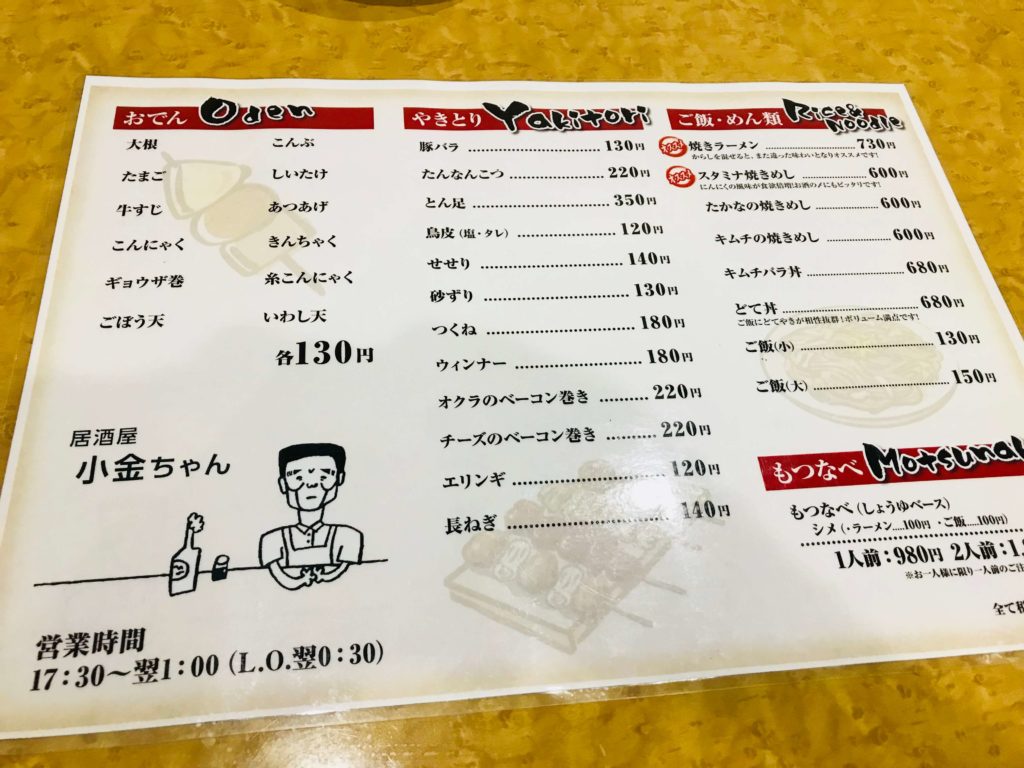 おでん Oden
大根 こんぶ
たまご しいたけ
牛すじ あつあげ
こんにゃく きんちゃく
ギョウザ巻 糸こんにゃく
ごぼう天 いわし天
各130円
居酒屋
小金ちゃん
営業時間
17:30～翌1:00 (L.O.翌0:30)
やきとり Yakitori
豚バラ 130円
たんなんこつ 220円
とん足 350円
鳥皮(塩・タレ) 120円
せせり 140円
砂ずり 130円
つくね 180円
ウィンナー 180円
オクラのベーコン巻き 220円
チーズのベーコン巻き 220円
エリンギ 120円
長ねぎ 140円
ご飯・めん類 Rice & Noodle
焼きラーメン 730円
からしを混ぜると、また違った味わいとなりオススメです!
スタミナ焼きめし 600円
にんにくの風味が食欲倍増!お酒の〆にもピッタリです!
たかなの焼きめし 600円
キムチの焼きめし 600円
キムチバラ丼 680円
どて丼 680円
ご飯にどてやきが相性抜群!ボリューム満点です!
ご飯(小) 130円
ご飯(大) 150円
もつなべ
もつなべ(しょうゆベース)
シメ(・ラーメン....100円 ・ご飯....100円)
1人前:980円 2人前:1,
※お一人様に限り一人前のご注
全て税